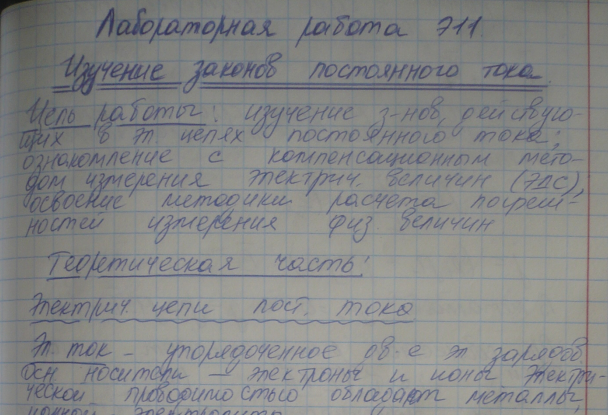 Лабораторная работа Э11.
Изучение законов постоянного тока.
Цель работы: изучение з-нов, действую-
щих в эл цепях постоянного тока;
ознакомление с компенсационным мето-
дом измерения электрич. величин (ЭДС);
освоение методики расчета погреш-
ностей измерения физ. величин
Теоретическая часть:
Электрич цепи пост. тока
Эл. ток - упорядоченное дв-е эл зарядов
Осн носители - электроны и ионы Электри-
ческой проводимостью обладают металлы,